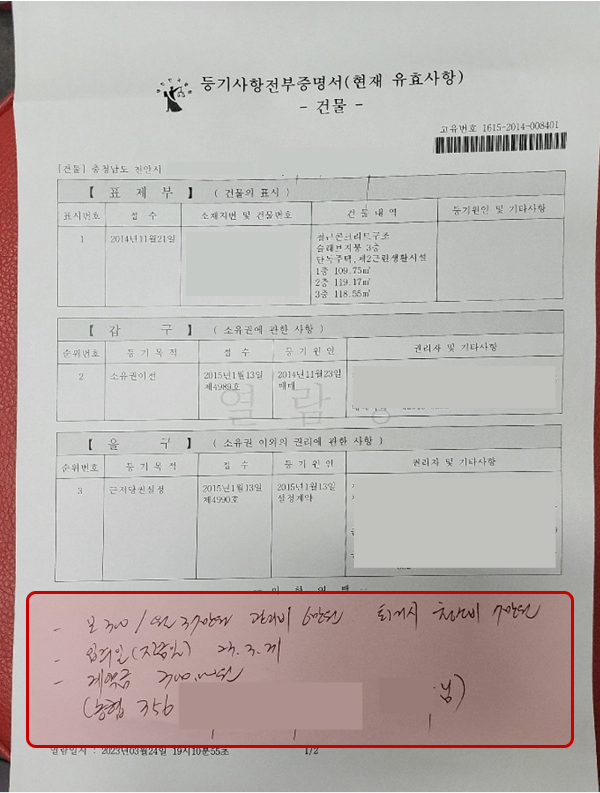 등기사항전부증명서(현재 유효사항)
- 건물 -
고유번호 1615-2014-008401
[건물] 충청남도 천안시
【 표 제 부 】 ( 건물의 표시 )
표시번호 접 수 소재지번 및 건물번호 건 물 내 역 등기원인 및 기타사항
1 2014년11월21일 철근콘크리트구조
슬래브지붕 3층
단독주택,제2근린생활시설
1층 109.75㎡
2층 119.17㎡
3층 118.55㎡
【 갑 구 】 ( 소유권에 관한 사항 )
순위번호 등 기 목 적 접 수 등 기 원 인 권리자 및 기타사항
2 소유권이전 2015년1월13일 2014년11월23일
제4989호 매매
열 람 용
【 을 구 】 ( 소유권 이외의 권리에 관한 사항 )
순위번호 등 기 목 적 접 수 등 기 원 인 권리자 및 기타사항
3 근저당권설정 2015년1월13일 2015년1월13일
제4990호 설정계약
- 보 300 / 월 37만원 관리비 6만원 퇴거시 청소비 7만원
- 입주일(잔금일) 23.3.
- 계약금 만원
(농협 356 님)
열람일시 : 2023년03월24일 19시10분55초 1/2